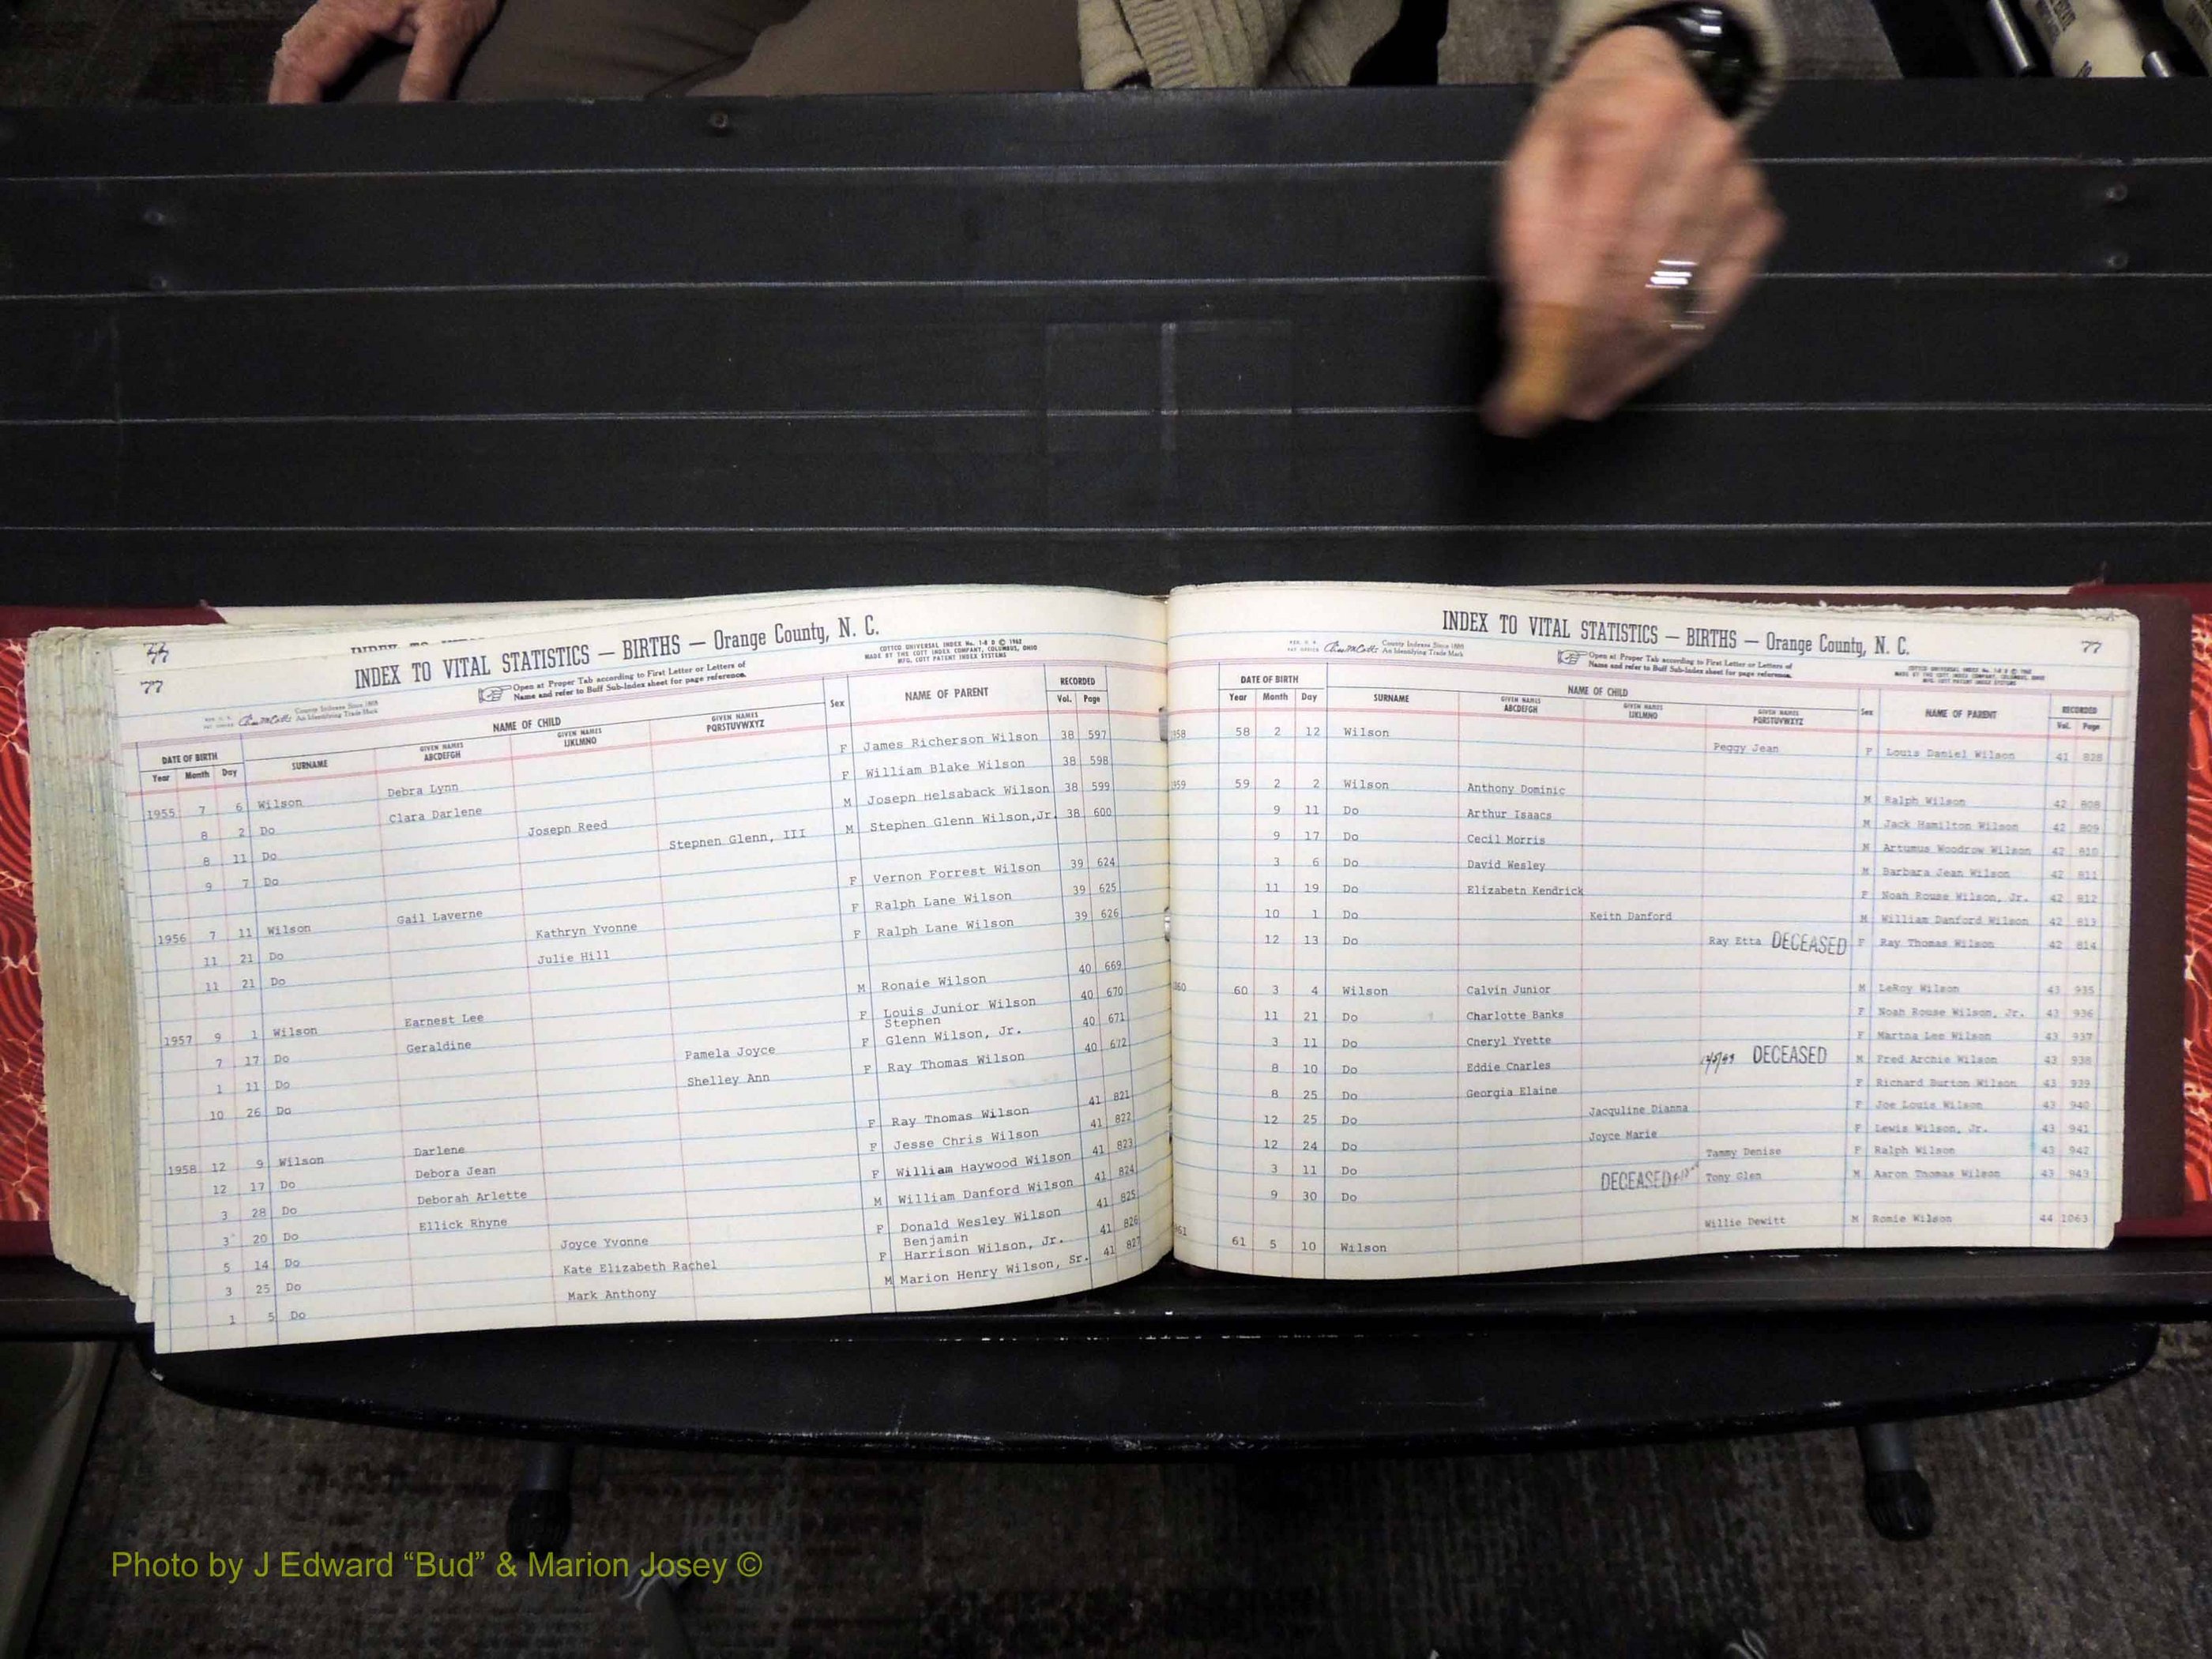 77
77
INDEX TO VITAL STATISTICS — BIRTHS — Orange County, N. C.
Open at Proper Tab according to First Letter or Letters of
Name and refer to Buff Sub-Index sheet for page reference.
COTTCO UNIVERSAL INDEX No. 1-8 D © 1962
MADE BY THE COTT INDEX COMPANY, COLUMBUS, OHIO
MFG. COTT PATENT INDEX SYSTEMS
County Indexes Since 1888
An Identifying Trade Mark
DATE OF BIRTH NAME OF CHILD Sex NAME OF PARENT RECORDED
Year Month Day SURNAME GIVEN NAMES ABCDEFGH GIVEN NAMES IJKLMNO GIVEN NAMES PQRSTUVWXYZ Vol. Page
1955 7 6 Wilson Debra Lynn F James Richerson Wilson 38 597
8 2 Do Clara Darlene F William Blake Wilson 38 598
8 11 Do Joseph Reed M Joseph Helsaback Wilson 38 599
9 7 Do Stephen Glenn, III M Stephen Glenn Wilson,Jr. 38 600
1956 7 11 Wilson Gail Laverne F Vernon Forrest Wilson 39 624
11 21 Do Kathryn Yvonne F Ralph Lane Wilson 39 625
11 21 Do Julie Hill F Ralph Lane Wilson 39 626
1957 9 1 Wilson Earnest Lee M Ronaie Wilson 40 669
7 17 Do Geraldine F Louis Junior Wilson 40 670
1 11 Do Pamela Joyce F Stephen Glenn Wilson, Jr. 40 671
10 26 Do Shelley Ann F Ray Thomas Wilson 40 672
1958 12 9 Wilson Darlene F Ray Thomas Wilson 41 821
12 17 Do Debora Jean F Jesse Chris Wilson 41 822
3 28 Do Deborah Arlette F William Haywood Wilson 41 823
3 20 Do Ellick Rhyne M William Danford Wilson 41 824
5 14 Do Joyce Yvonne F Donald Wesley Wilson 41 825
3 25 Do Kate Elizabeth Rachel F Benjamin Harrison Wilson, Jr. 41 826
1 5 Do Mark Anthony M Marion Henry Wilson, Sr. 41 827
INDEX TO VITAL STATISTICS — BIRTHS — Orange County, N. C.
77
County Indexes Since 1888
An Identifying Trade Mark
Open at Proper Tab according to First Letter or Letters of
Name and refer to Buff Sub-Index sheet for page reference.
DATE OF BIRTH NAME OF CHILD Sex NAME OF PARENT RECORDED
Year Month Day SURNAME GIVEN NAMES ABCDEFGH GIVEN NAMES IJKLMNO GIVEN NAMES PQRSTUVWXYZ Vol. Page
58 2 12 Wilson Peggy Jean F Louis Daniel Wilson 41 828
59 2 2 Wilson Anthony Dominic M Ralph Wilson 42 808
9 11 Do Arthur Isaacs M Jack Hamilton Wilson 42 809
9 17 Do Cecil Morris M Artumus Woodrow Wilson 42 810
3 6 Do David Wesley M Barbara Jean Wilson 42 811
11 19 Do Elizabeth Kendrick F Noah Rouse Wilson, Jr. 42 812
10 1 Do Keith Danford M William Danford Wilson 42 813
12 13 Do Ray Etta DECEASED F Ray Thomas Wilson 42 814
60 3 4 Wilson Calvin Junior M LeRoy Wilson 43 935
11 21 Do Charlotte Banks F Noah Rouse Wilson, Jr. 43 936
3 11 Do Cheryl Yvette F Martha Lee Wilson 43 937
8 10 Do Eddie Charles DECEASED M Fred Archie Wilson 43 938
8 25 Do Georgia Elaine F Richard Burton Wilson 43 939
12 25 Do Jacquline Dianna F Joe Louis Wilson 43 940
12 24 Do Joyce Marie F Lewis Wilson, Jr. 43 941
3 11 Do Tammy Denise F Ralph Wilson 43 942
9 30 Do DECEASED Tony Glen M Aaron Thomas Wilson 43 943
61 5 10 Wilson Willie Dewitt M Romie Wilson 44 1063
Photo by J Edward “Bud” & Marion Josey ©